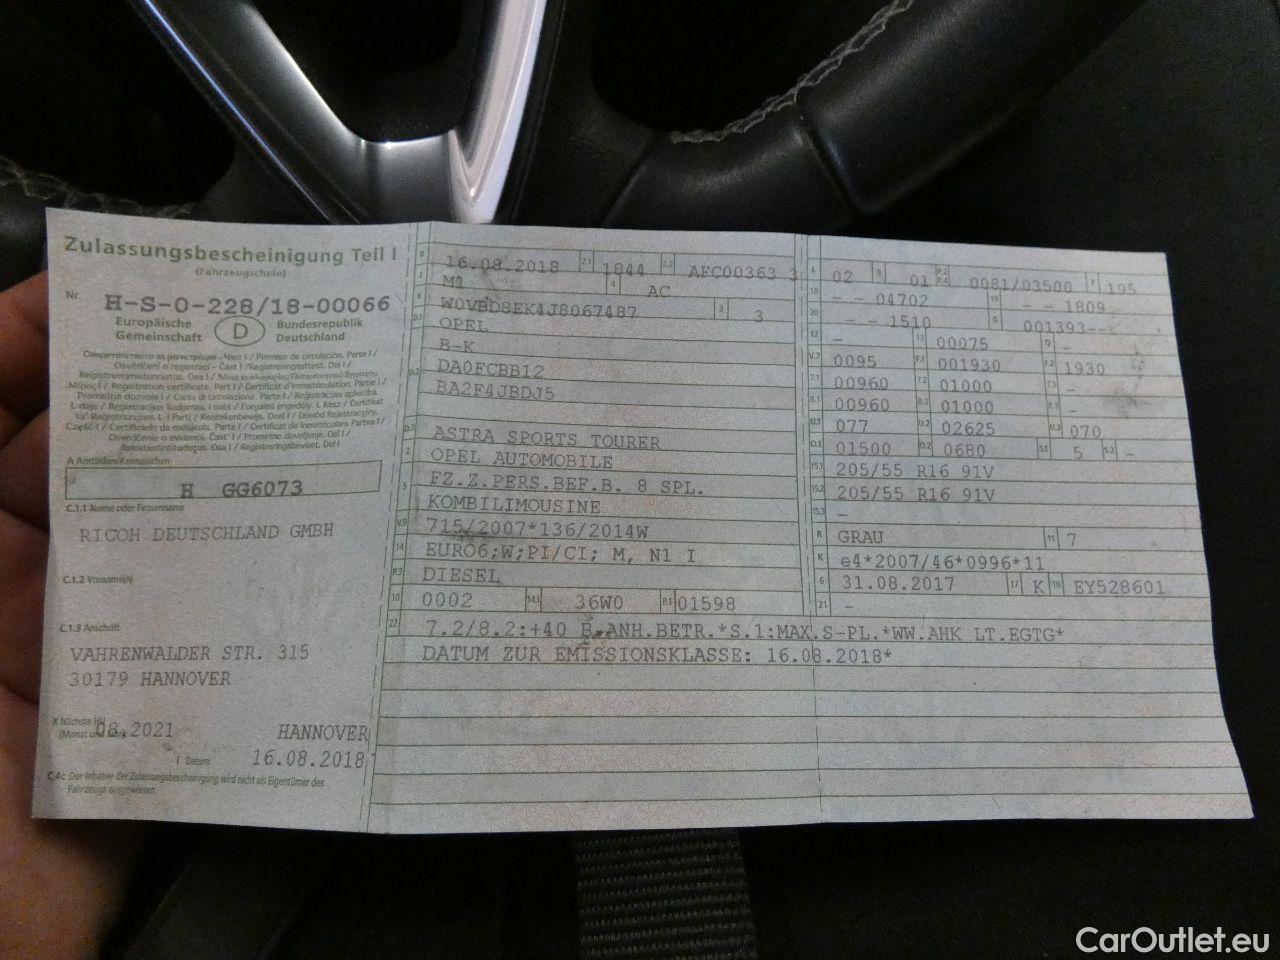 Zulassungsbescheinigung Teil I
(Fahrzeugschein)
Nr. H-S-0-228/18-00066
Europäische Gemeinschaft
D
Bundesrepublik Deutschland
A Amtliches Kennzeichen
H GG6073
C.1.1 Name oder Firmenname
RICOH DEUTSCHLAND GMBH
C.1.2 Vorname(n)
C.1.3 Anschrift
VAHRENWALDER STR. 315
30179 HANNOVER
X Nächste HU
(Monat und Jahr)
08.2021
HANNOVER
I Datum:
16.08.2018
C.4c Der Inhaber der Zulassungsbescheinigung wird nicht als Eigentümer des
Fahrzeugs ausgewiesen.
B 16.08.2018 2.1 1844 2.2 AFC00363 3
J M1 4 AC
E W0VBD8EK4J8067487 3 3
D.1 OPEL
B-K
D.2 DA0FCBB12
BA2F4JBDJ5
D.3 ASTRA SPORTS TOURER
2 OPEL AUTOMOBILE
5 FZ.Z.PERS.BEF.B. 8 SPL.
KOMBILIMOUSINE
V.9 715/2007*136/2014W
14 EURO6;W;PI/CI; M, N1 I
P.3 DIESEL
10 0002 14.1 36W0 P.1 01598
22 7.2/8.2:+40 B.ANH.BETR.*S.1:MAX.S-PL.*WW.AHK LT.EGTG*
DATUM ZUR EMISSIONSKLASSE: 16.08.2018*
L 02 9 01 P.2 P.4 0081/03500 T 195
18 - - 04702 19 - - 1809
20 - - 1510 G 001393--
12 - 13 00075 Q -
V.7 0095 F.1 001930 F.2 1930
7.1 00960 7.2 01000 7.3 -
8.1 00960 8.2 01000 8.3 -
U.1 077 U.2 02625 U.3 070
O.1 01500 O.2 0680 S.1 5 S.2 -
15.1 205/55 R16 91V
15.2 205/55 R16 91V
15.3 -
R GRAU 11 7
K e4*2007/46*0996*11
6 31.08.2017 17 K 16 EY528601
21 -
CarOutlet.eu